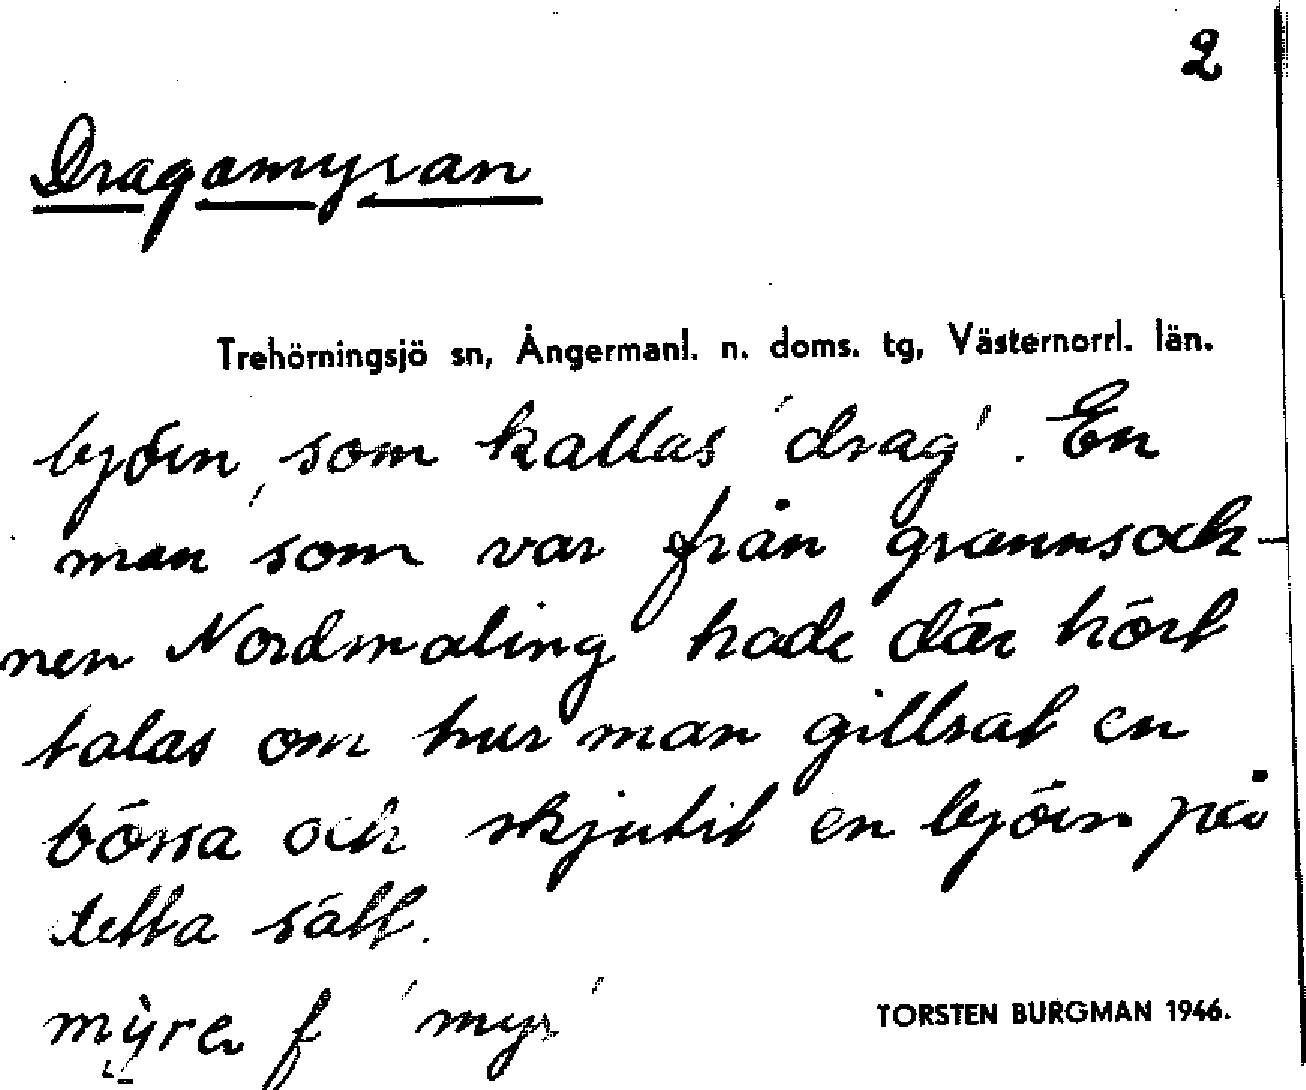 2
Dragamyran
Trehörningsjö sn, Ångermanl. n. doms. tg, Västernorrl. län.
björn, som kallas 'drag'. En
man som var från grannsock-
nen Nordmaling hade där hört
talas om hur man gillrat en
bössa och skjutit en björn på
detta sätt.
mỳre f 'myr'
TORSTEN BURGMAN 1946.